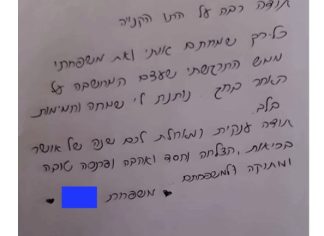 תודה רבה על התו הקנייה
כל-כך שמחתם אותי ואת משפחתי
ממש התרגשתי שעצם המחשבה על
האחר בחג. ניתנת לי שמחה וחמימות
בלב
תודה ענקית ומאחלת לכם שנה של אושר
בריאות, הצלחה וחסד ואהבה ופרנסה טובה
ומתוקה ולמשפחתם
משפחת